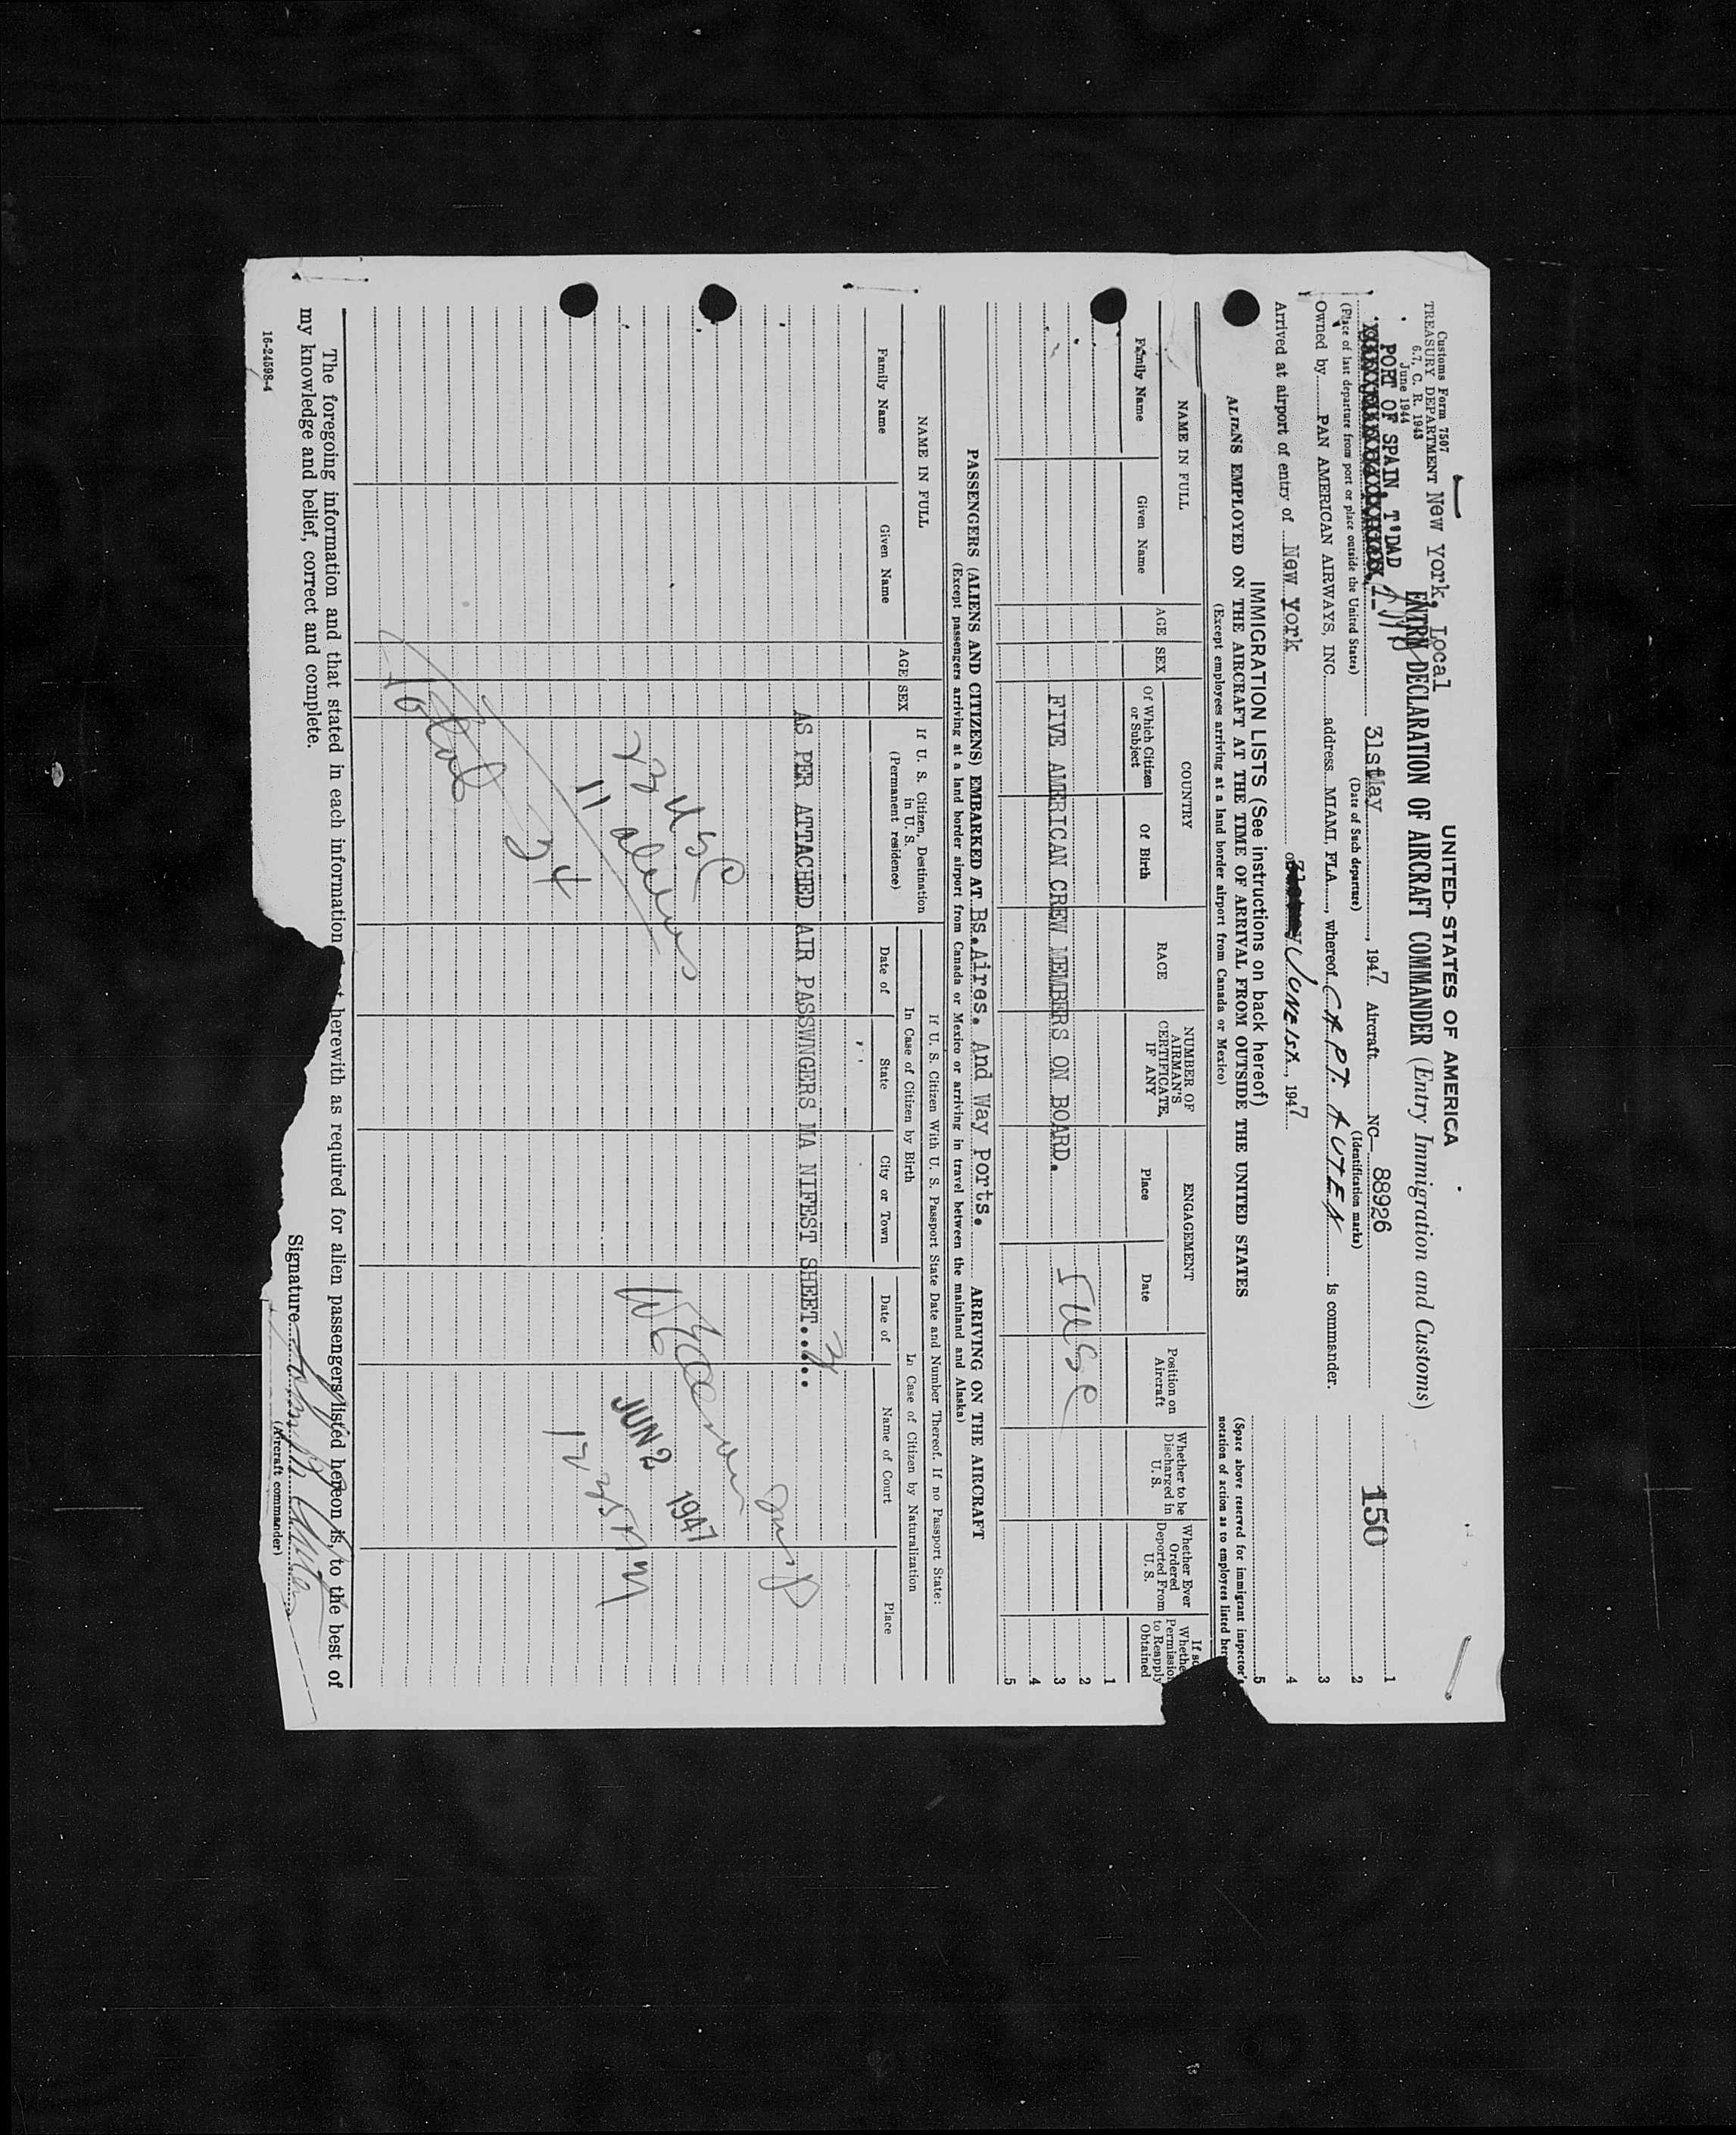 Customs Form 7507
TREASURY DEPARTMENT
6.7, C. R. 1943
June 1944
New York, Local
UNITED STATES OF AMERICA
ENTRY DECLARATION OF AIRCRAFT COMMANDER (Entry Immigration and Customs)
PORT OF SPAIN, T'DAD
31stMay, 1947 Aircraft NC- 88926
150
(Place of last departure from port or place outside the United States) (Date of Such departure) (Identification marks)
Owned by PAN AMERICAN AIRWAYS, INC. address MIAMI, FLA., whereof CAPT. AUTEN is commander.
Arrived at airport of entry of New York on JUNE 1st, 1947
1
2
3
4
5
(Space above reserved for immigrant inspector's
notation of action as to employees listed
IMMIGRATION LISTS (See instructions on back hereof)
ALIENS EMPLOYED ON THE AIRCRAFT AT THE TIME OF ARRIVAL FROM OUTSIDE THE UNITED STATES
(Except employees arriving at a land border airport from Canada or Mexico)
NAME IN FULL
Family Name
Given Name
AGE
SEX
COUNTRY
Of Which Citizen or Subject
Of Birth
RACE
NUMBER OF AIRMAN'S CERTIFICATE, IF ANY
ENGAGEMENT
Place
Date
Position on Aircraft
Whether to be Discharged in U. S.
Whether Ever Ordered Deported From U. S.
to Reapply Obtained
1
2
3
4
5
FIVE AMERICAN CREW MEMBERS ON BOARD.
5 USC
PASSENGERS (ALIENS AND CITIZENS) EMBARKED AT Bs.Aires. And Way Ports. ARRIVING ON THE AIRCRAFT
(Except passengers arriving at a land border airport from Canada or Mexico or arriving in travel between the mainland and Alaska)
NAME IN FULL
Family Name
Given Name
AGE
SEX
If U. S. Citizen, Destination in U. S. (Permanent residence)
If U. S. Citizen With U. S. Passport State Date and Number Thereof. If no Passport State:
In Case of Citizen by Birth
Date of
State
City or Town
In Case of Citizen by Naturalization
Date of
Name of Court
Place
AS PER ATTACHED AIR PASSWNGERS MA NIFEST SHEET.....
3
23 USC
11 aliens
Total 34
JUN 2 1947
The foregoing information and that stated in each information herewith as required for alien passengers listed hereon is, to the best of
my knowledge and belief, correct and complete.
Signature
(Aircraft commander)
16-24598-4